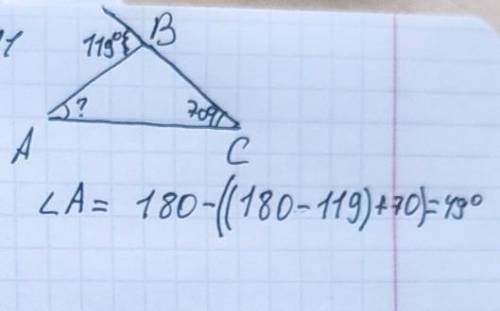 119° B
? 70°
A C
∠A = 180-((180-119)+70)=49°